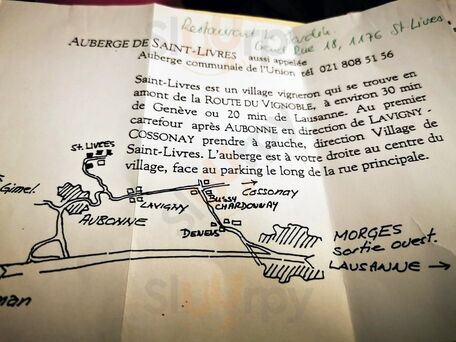 Restaurant Le
Grand Rue 18, 1176 St. Livres
AUBERGE DE SAINT-LIVRES aussi appelée
Auberge communale de l'Union tél 021 808 51 56
Saint-Livres est un village vigneron qui se trouve en
amont de la ROUTE DU VIGNOBLE, à environ 30 min
de Genève ou 20 min de Lausanne. Au premier
carrefour après AUBONNE en direction de LAVIGNY -
COSSONAY prendre à gauche, direction Village de
Saint-Livres. L'auberge est à votre droite au centre du
village, face au parking le long de la rue principale.
St. LIVRES
Gimel.
Cossonay
LAVIGNY
BUSSY
CHARDONNAY
AUBONNE
DENENS
MORGES
Sortie ouest.
LAUSANNE →
man
Slurrpy